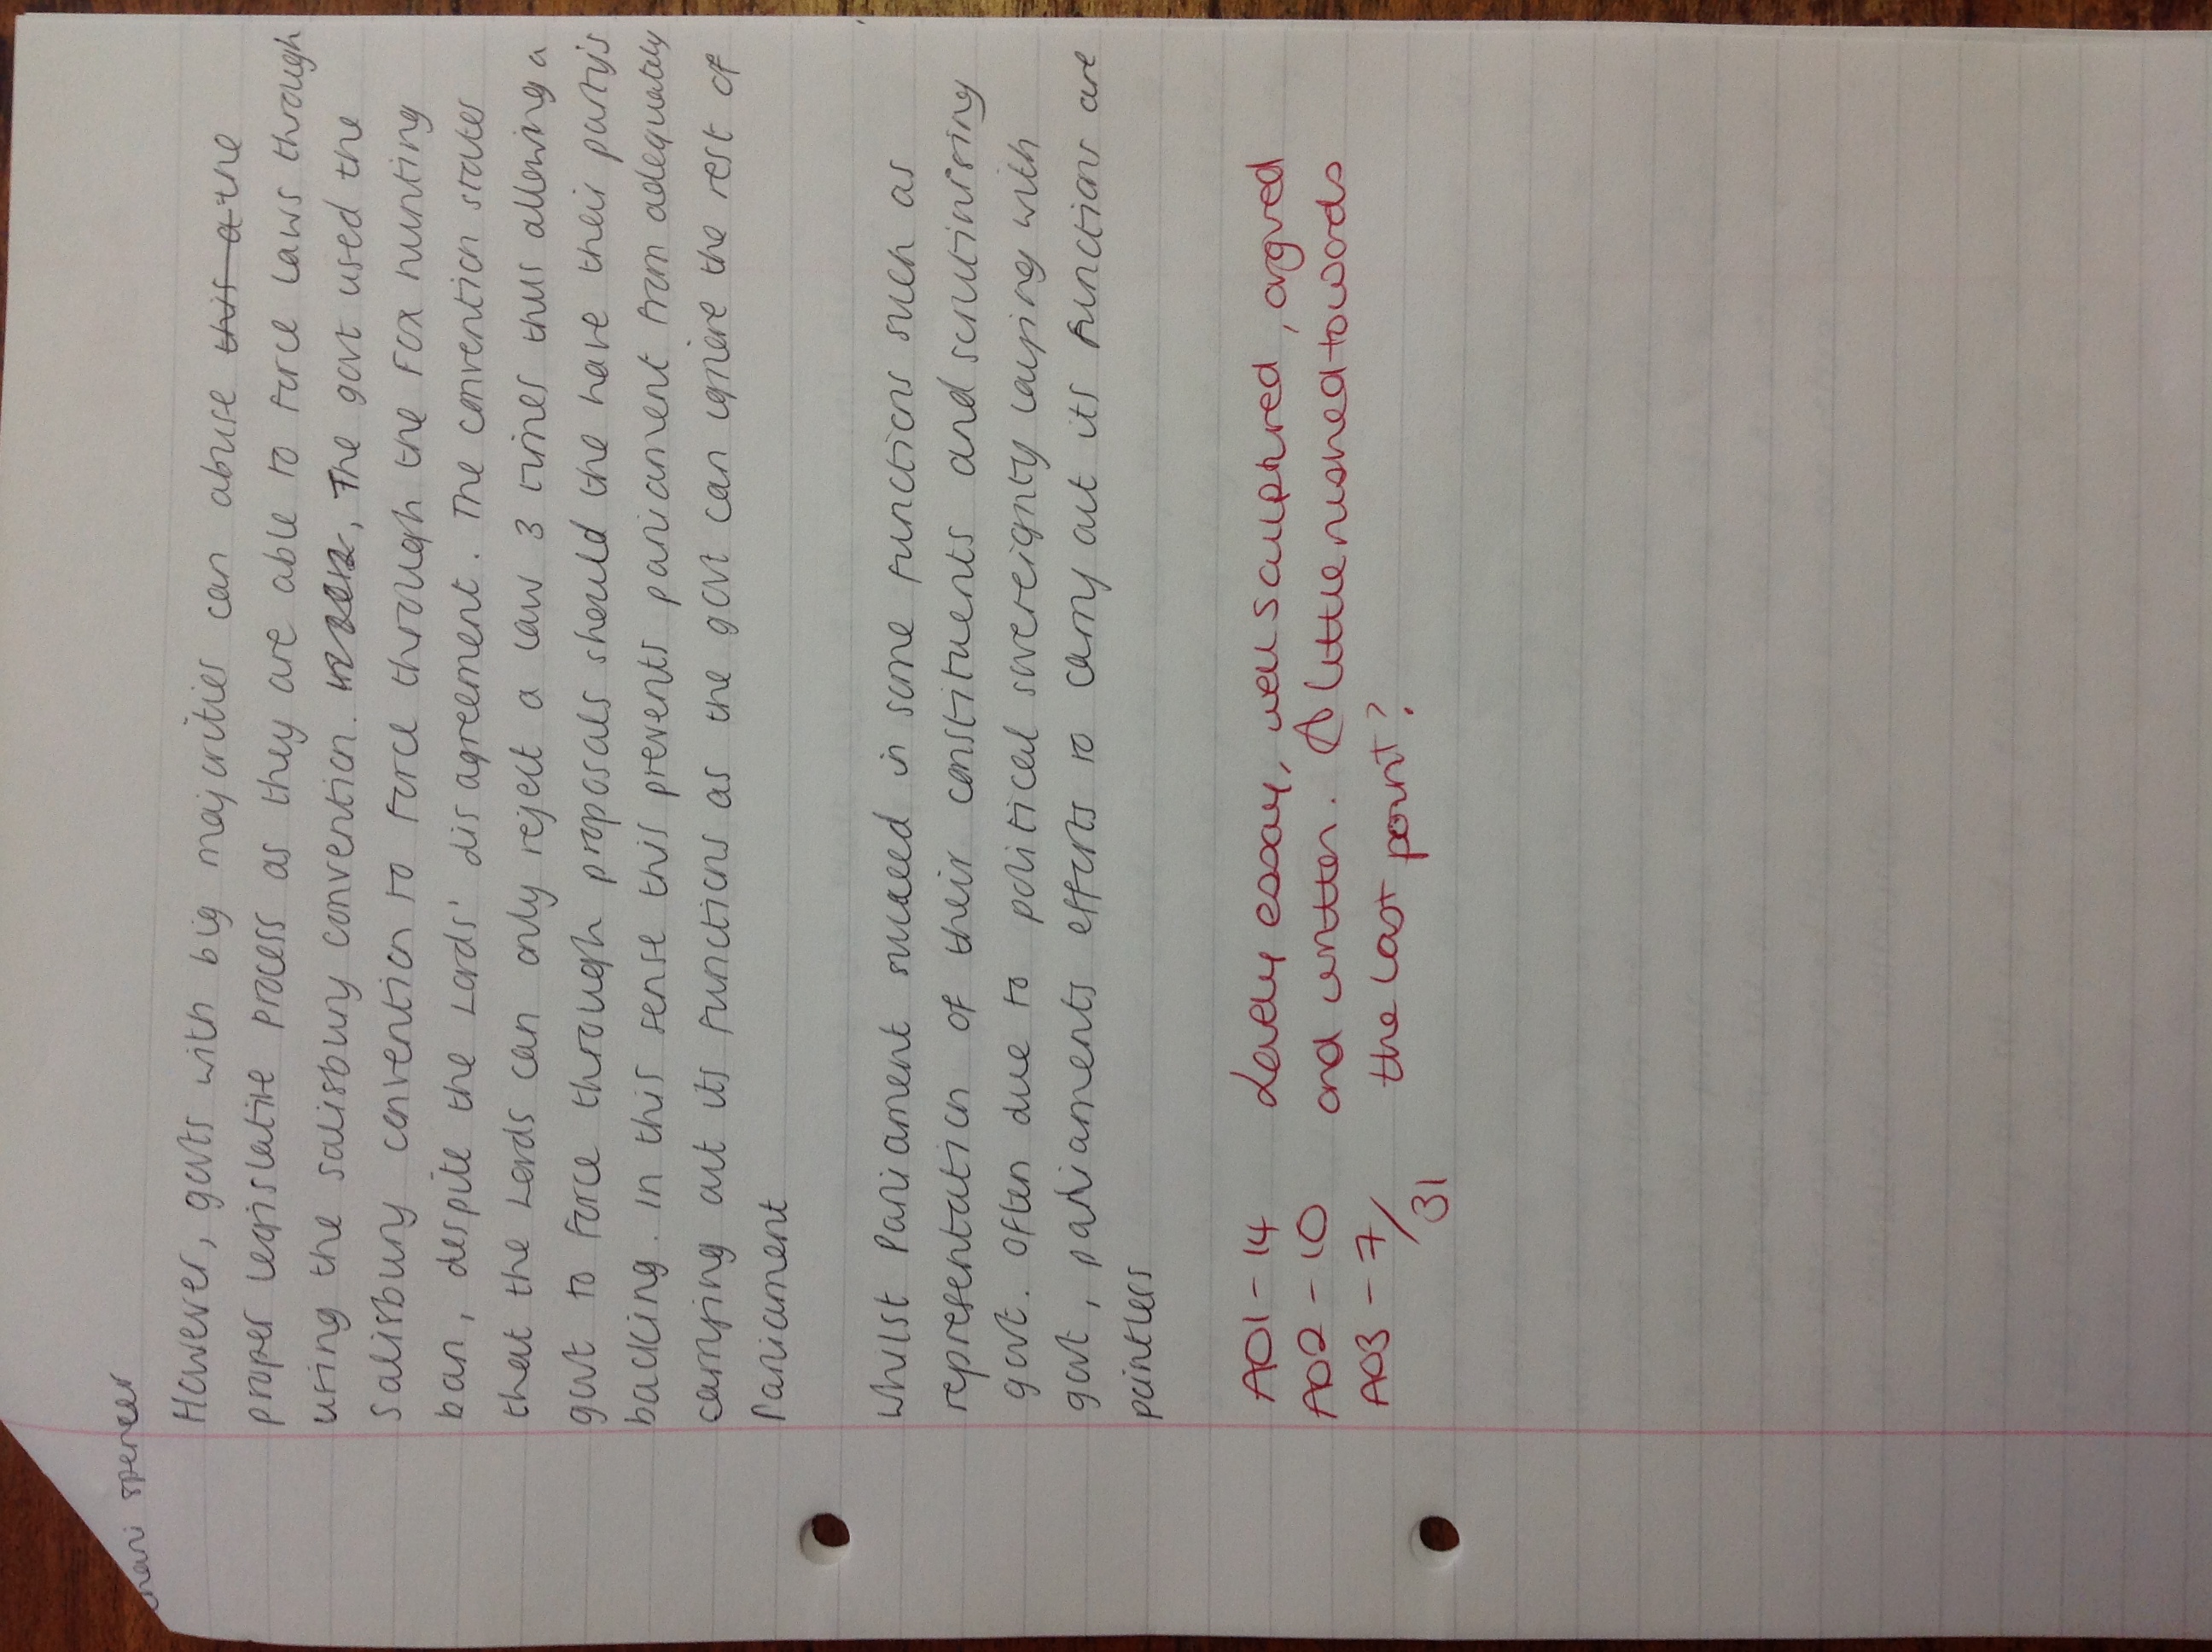 spencer
However, govts with big majorities can abuse this a the
proper legislative process as they are able to force laws through
using the salisbury convention. , The govt used the
Salisbury convention to force through the Fox hunting
ban, despite the Lords' disagreement. The convention states
that the Lords can only reject a law 3 times thus allowing a
govt to force through proposals should the have their party's
backing. In this sense this prevents parliament from adequately
carrying out its functions as the govt can ignore the rest of
Parliament
Whilst Parliament succeed in some functions such as
representation of their constituents and scrutinising
govt. Often due to political sovereignty laying with
govt, parliaments efforts to carry out its functions are
pointless
AO1 - 14 Lovely essay, well sculptured, argued
AO2 - 10 and written. A little rushed towards
AO3 - 7 the last point?
/31